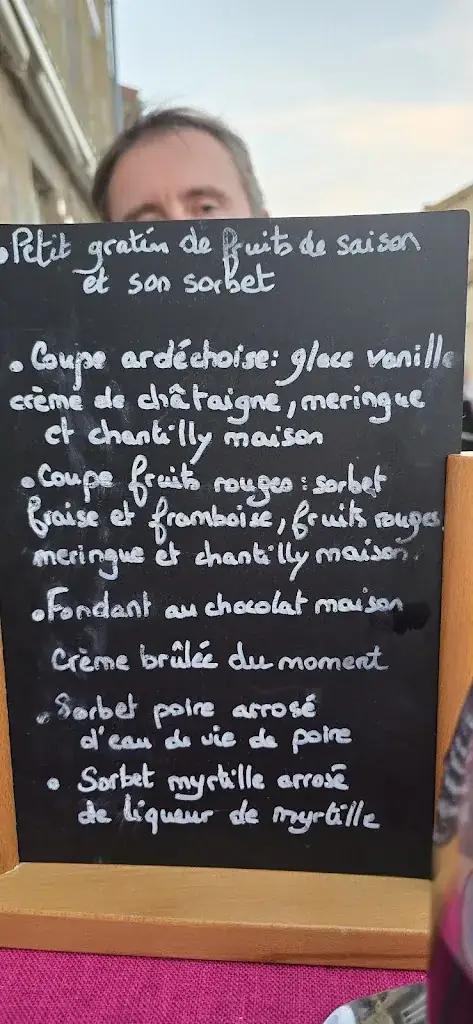 • Petit gratin de fruits de saison
et son sorbet
• Coupe ardéchoise: glace vanille
crème de châtaigne, meringue
et chantilly maison
• Coupe fruits rouges : sorbet
fraise et framboise, fruits rouges,
meringue et chantilly maison.
• Fondant au chocolat maison
Crème brûlée du moment
• Sorbet poire arrosé
d'eau de vie de poire
• Sorbet myrtille arrosé
de liqueur de myrtille